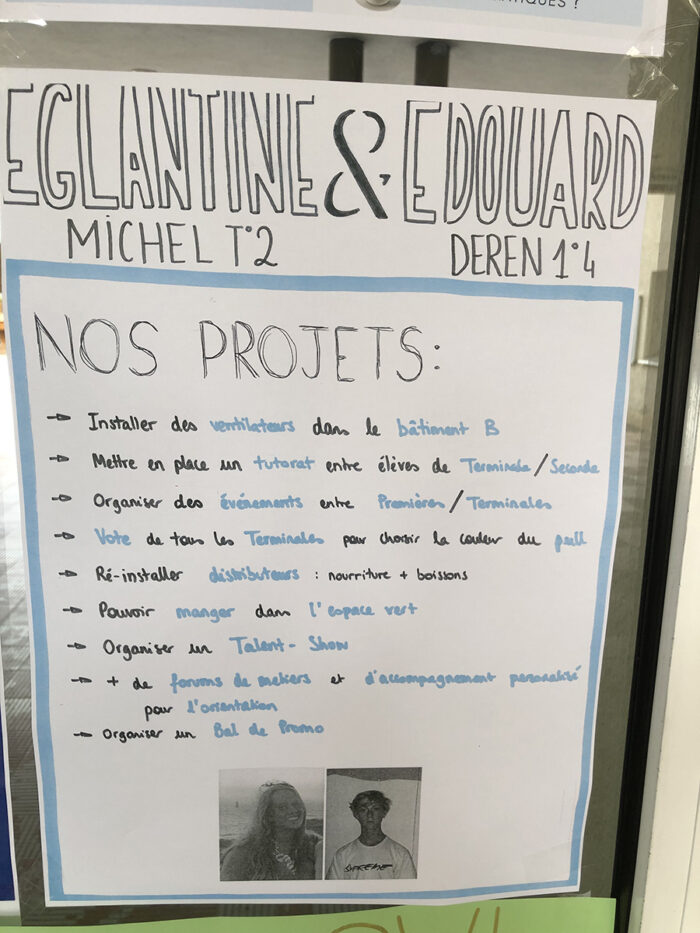 TIQUES ?
EGLANTINE & EDOUARD
MICHEL T°2 DEREN 1°4
NOS PROJETS:
→ Installer des ventilateurs dans le bâtiment B
→ Mettre en place un tutorat entre élèves de Terminale/Seconde
→ Organiser des événements entre Premières/Terminales
→ Vote de tous les Terminales pour choisir la couleur du pull
→ Ré-installer distributeurs : nourriture + boissons
→ Pouvoir manger dans l'espace vert
→ Organiser un Talent-Show
→ + de forums de metiers et d'accompagnement personalisé
pour l'orientation
→ Organiser un Bal de Promo
SUPREME